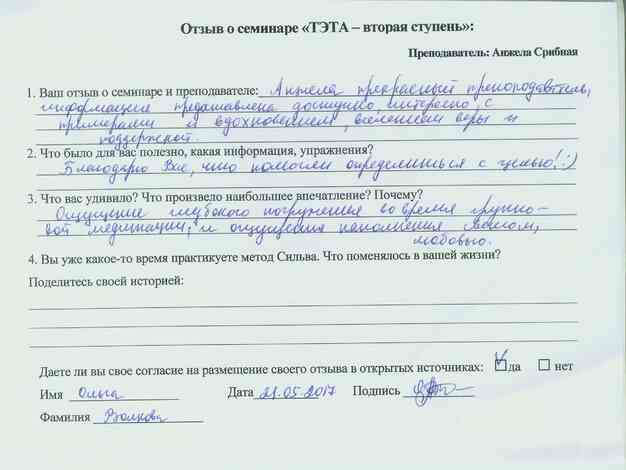 Отзыв о семинаре «ТЭТА – вторая ступень»:
Преподаватель: Анжела Срибная
1. Ваш отзыв о семинаре и преподавателе: Анжела прекрасный преподаватель,
информация предоставлена доступно, интересно, с
примерами и вдохновением, вселением веры и
поддержкой.
2. Что было для вас полезно, какая информация, упражнения?
Благодарю Вас, что помогли определиться с целью! :)
3. Что вас удивило? Что произвело наибольшее впечатление? Почему?
Ощущение глубокого погружения во время группо-
вой медитации, и ощущения наполнения светом,
любовью.
4. Вы уже какое-то время практикуете метод Сильва. Что поменялось в вашей жизни?
Поделитесь своей историей:
Даете ли вы свое согласие на размещение своего отзыва в открытых источниках: да нет
Имя Ольга Дата 21.05.2017 Подпись
Фамилия Волкова